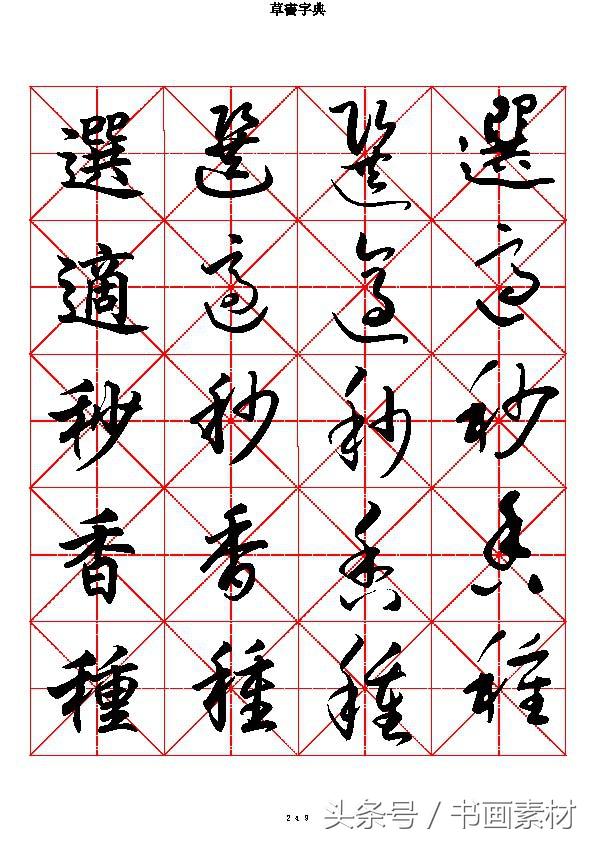 草書字典
選 選 選 選
適 適 適 適
秒 秒 秒 秒
香 香 香 香
種 種 種 種
249
头条号 / 书画素材